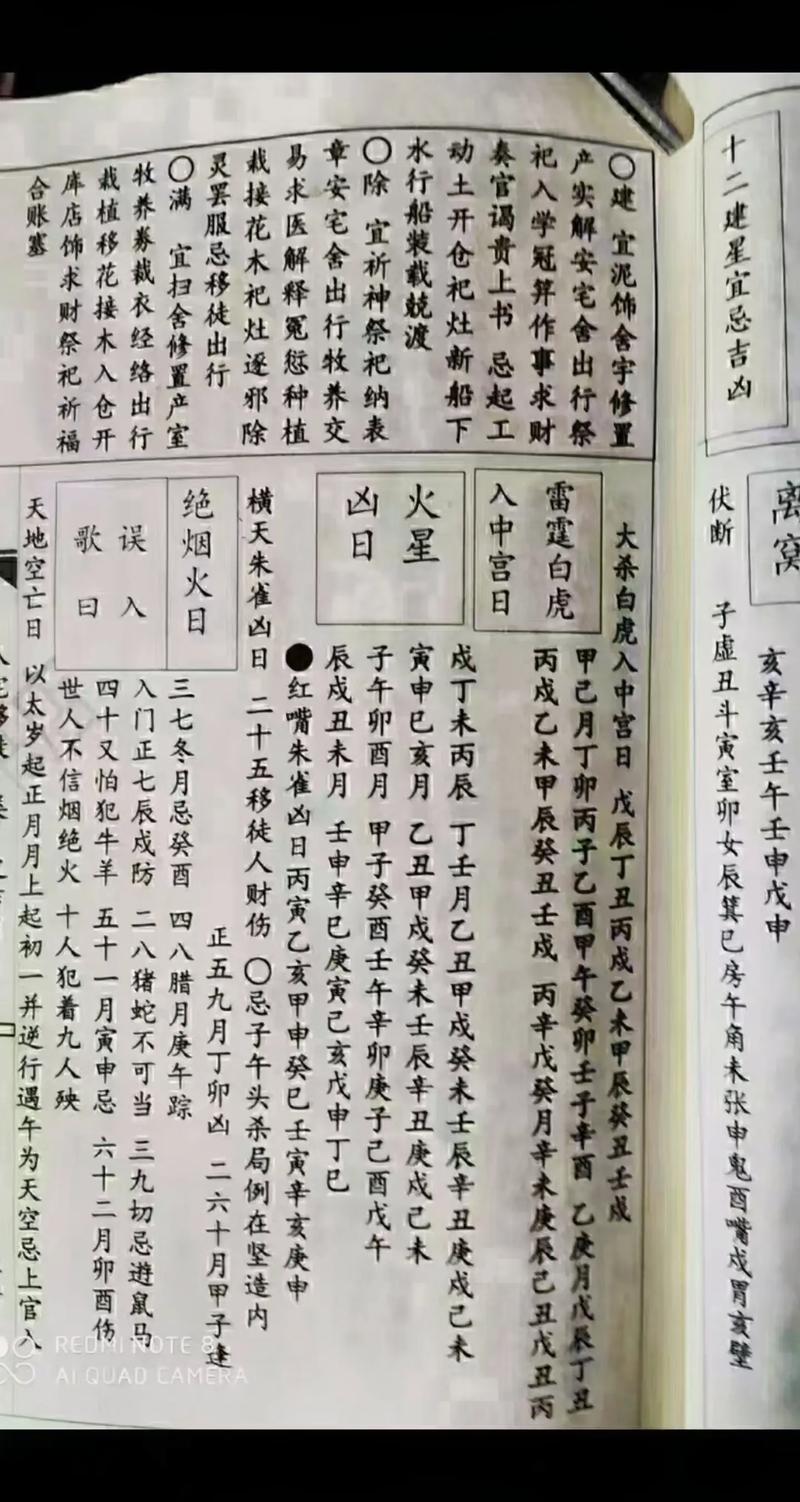 十二建星宜忌吉凶
〇建 宜泥饰舍宇修置
产实解安宅舍出行祭
祀入学冠筭作事求财
奏官谒贵上书 忌起工
动土开仓祀灶新船下
水行船装载兢渡
〇除 宜祈神祭祀纳表
章安宅舍出行牧养交
易求医解释冤愆种植
栽接花木祀灶逐邪除
灵罢服忌移徒出行
〇满 宜扫舍修置产室
牧养券裁衣经络出行
栽植移花接木入仓开
库店饰求财祭祀祈福
合账塞
离窝
亥辛亥壬午壬申戊申
伏断 子虚丑斗寅室卯女辰箕巳房午角未张申鬼酉嘴戌胃亥壁
大杀白虎入中宫日 戊辰丁丑丙戌乙未甲辰癸丑壬戌
雷霆白虎
入中宫日
甲己月丁卯丙子乙酉甲午癸卯壬子辛酉 乙庚月戊辰丁丑
丙戌乙未甲辰癸丑壬戌 丙辛戊癸月辛未庚辰己丑戊丑丙
戌丁未丙辰 丁壬月乙丑甲戌癸未壬辰辛丑庚戌己未
火星
凶日
寅申巳亥月 乙丑甲戌癸未壬辰辛丑庚戌己未
子午卯酉月 甲子癸酉壬午辛卯庚子己酉戊午
辰戌丑未月 壬申辛巳庚寅己亥戊申丁巳
●红嘴朱雀凶日丙寅乙亥甲申癸巳壬寅辛亥庚申
横天朱雀凶日 二十五移徒人财伤 〇忌子午头杀局例在坚造内
绝烟火日
正五九月丁卯凶 二六十月甲子逢
三七冬月忌癸酉 四八腊月庚午踪
误入
歌曰
入门正七辰戌防 二八猪蛇不可当 三九切忌逰鼠马
四十又怕犯牛羊 五十一月寅申忌 六十二月卯酉伤
世人不信烟绝火 十人犯着九人殃
天地空亡日 以太岁起正月月上起初一并逆行遇午为天空忌上官入
REDMI NOTE 8
AI QUAD CAMERA